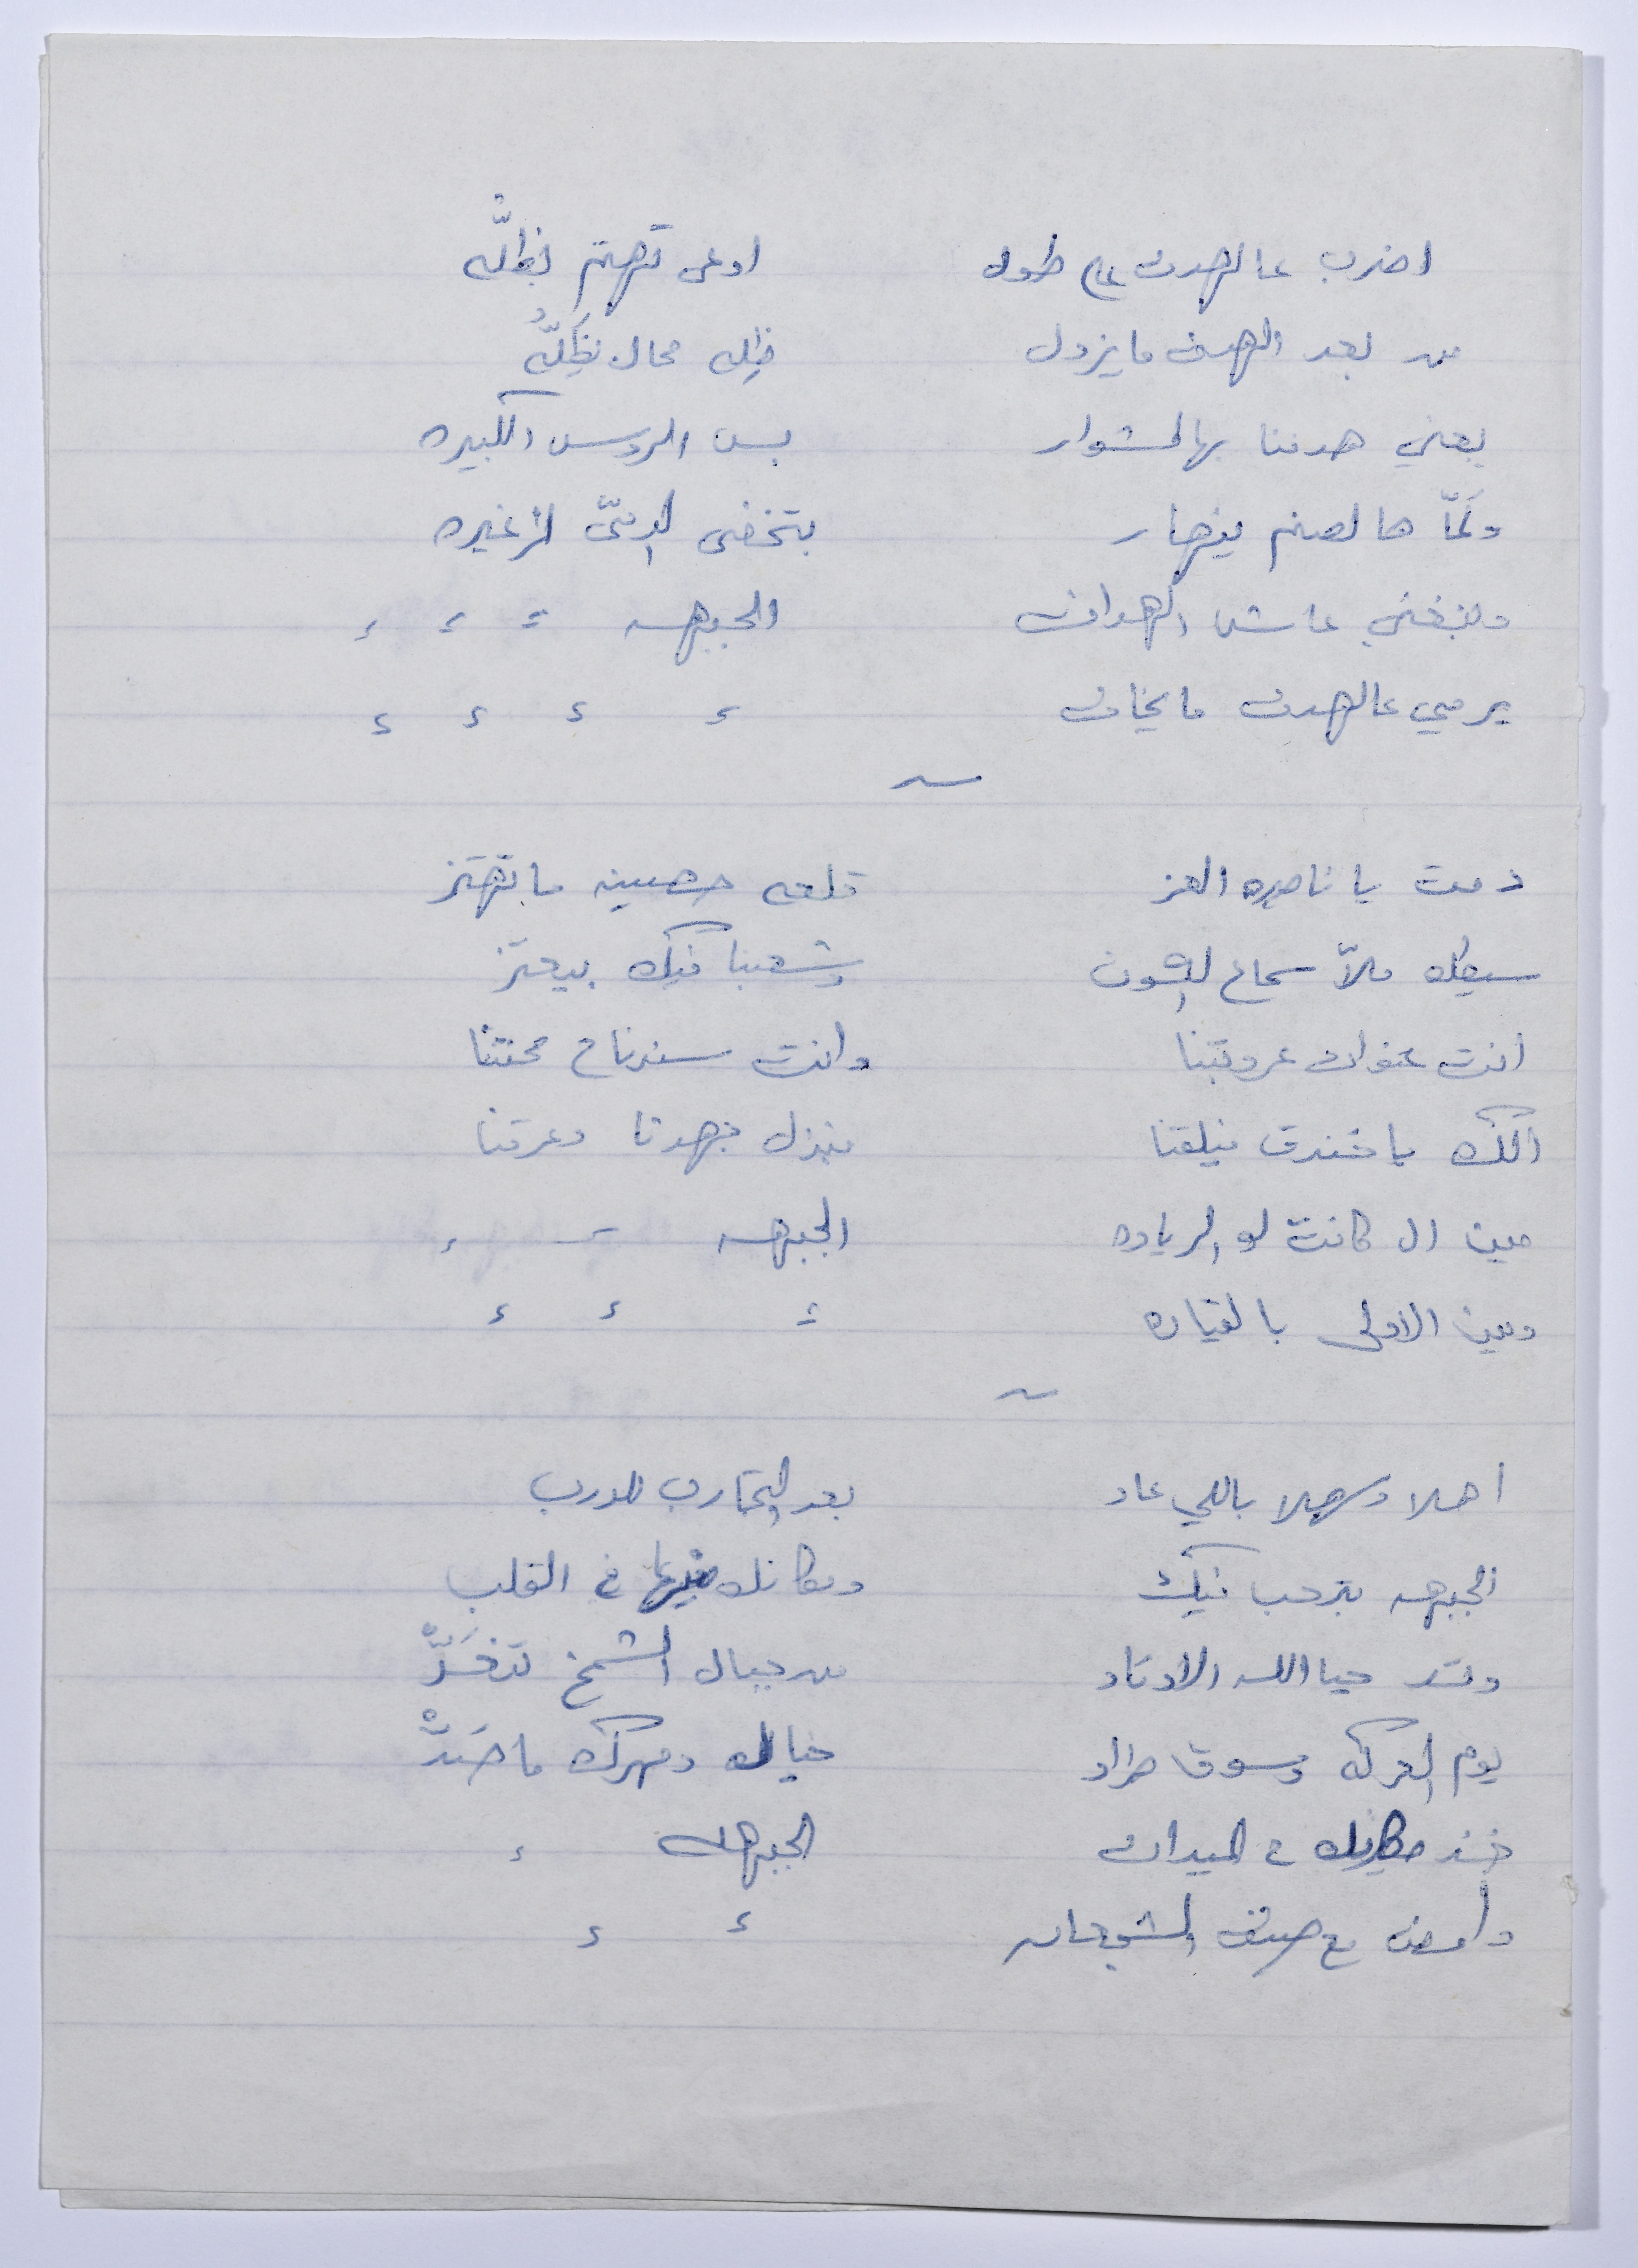 اضرب عالهدف على طول اوعى تهتم بظلّه
من بعد الهدف ما يزول ظله محال يظلّه
يعني هدفنا بهالمشوار بس الروس الكبيره
ولمّا هالصنم ينهار بتختفي الدمى الزغيره
ومنبغي عاش الهداف الجبهه " " "
يرمي عالهدف ما يخاف " " " "
دمت يا ناصره العز قلعه حصينه ما تهتز
سيطك ملاّ سماع الكون وشعبنا فيك بيعتز
انت عنوان عروبتنا وانت سندناع محنتنا
الك يا خندق نيلقنا منبذل جهدنا وعرقنا
مين ال كانت لو الرياده الجبهه " "
ومين الاولى بالقياده " " "
اهلا وسهلا باللي عاد بعد التجارب للدرب
الجبهه بترحب فيك ومكانك فيها في القلب
وتد حيا الله الاوتاد من جبال الشمخ تنقَدّْ
يوم المعركه وسوق طراد خيالك ومهرك ما صَدّْ
خذ مكانك ع الميدان الجبهه "
وامض مع صف الشجعان " "